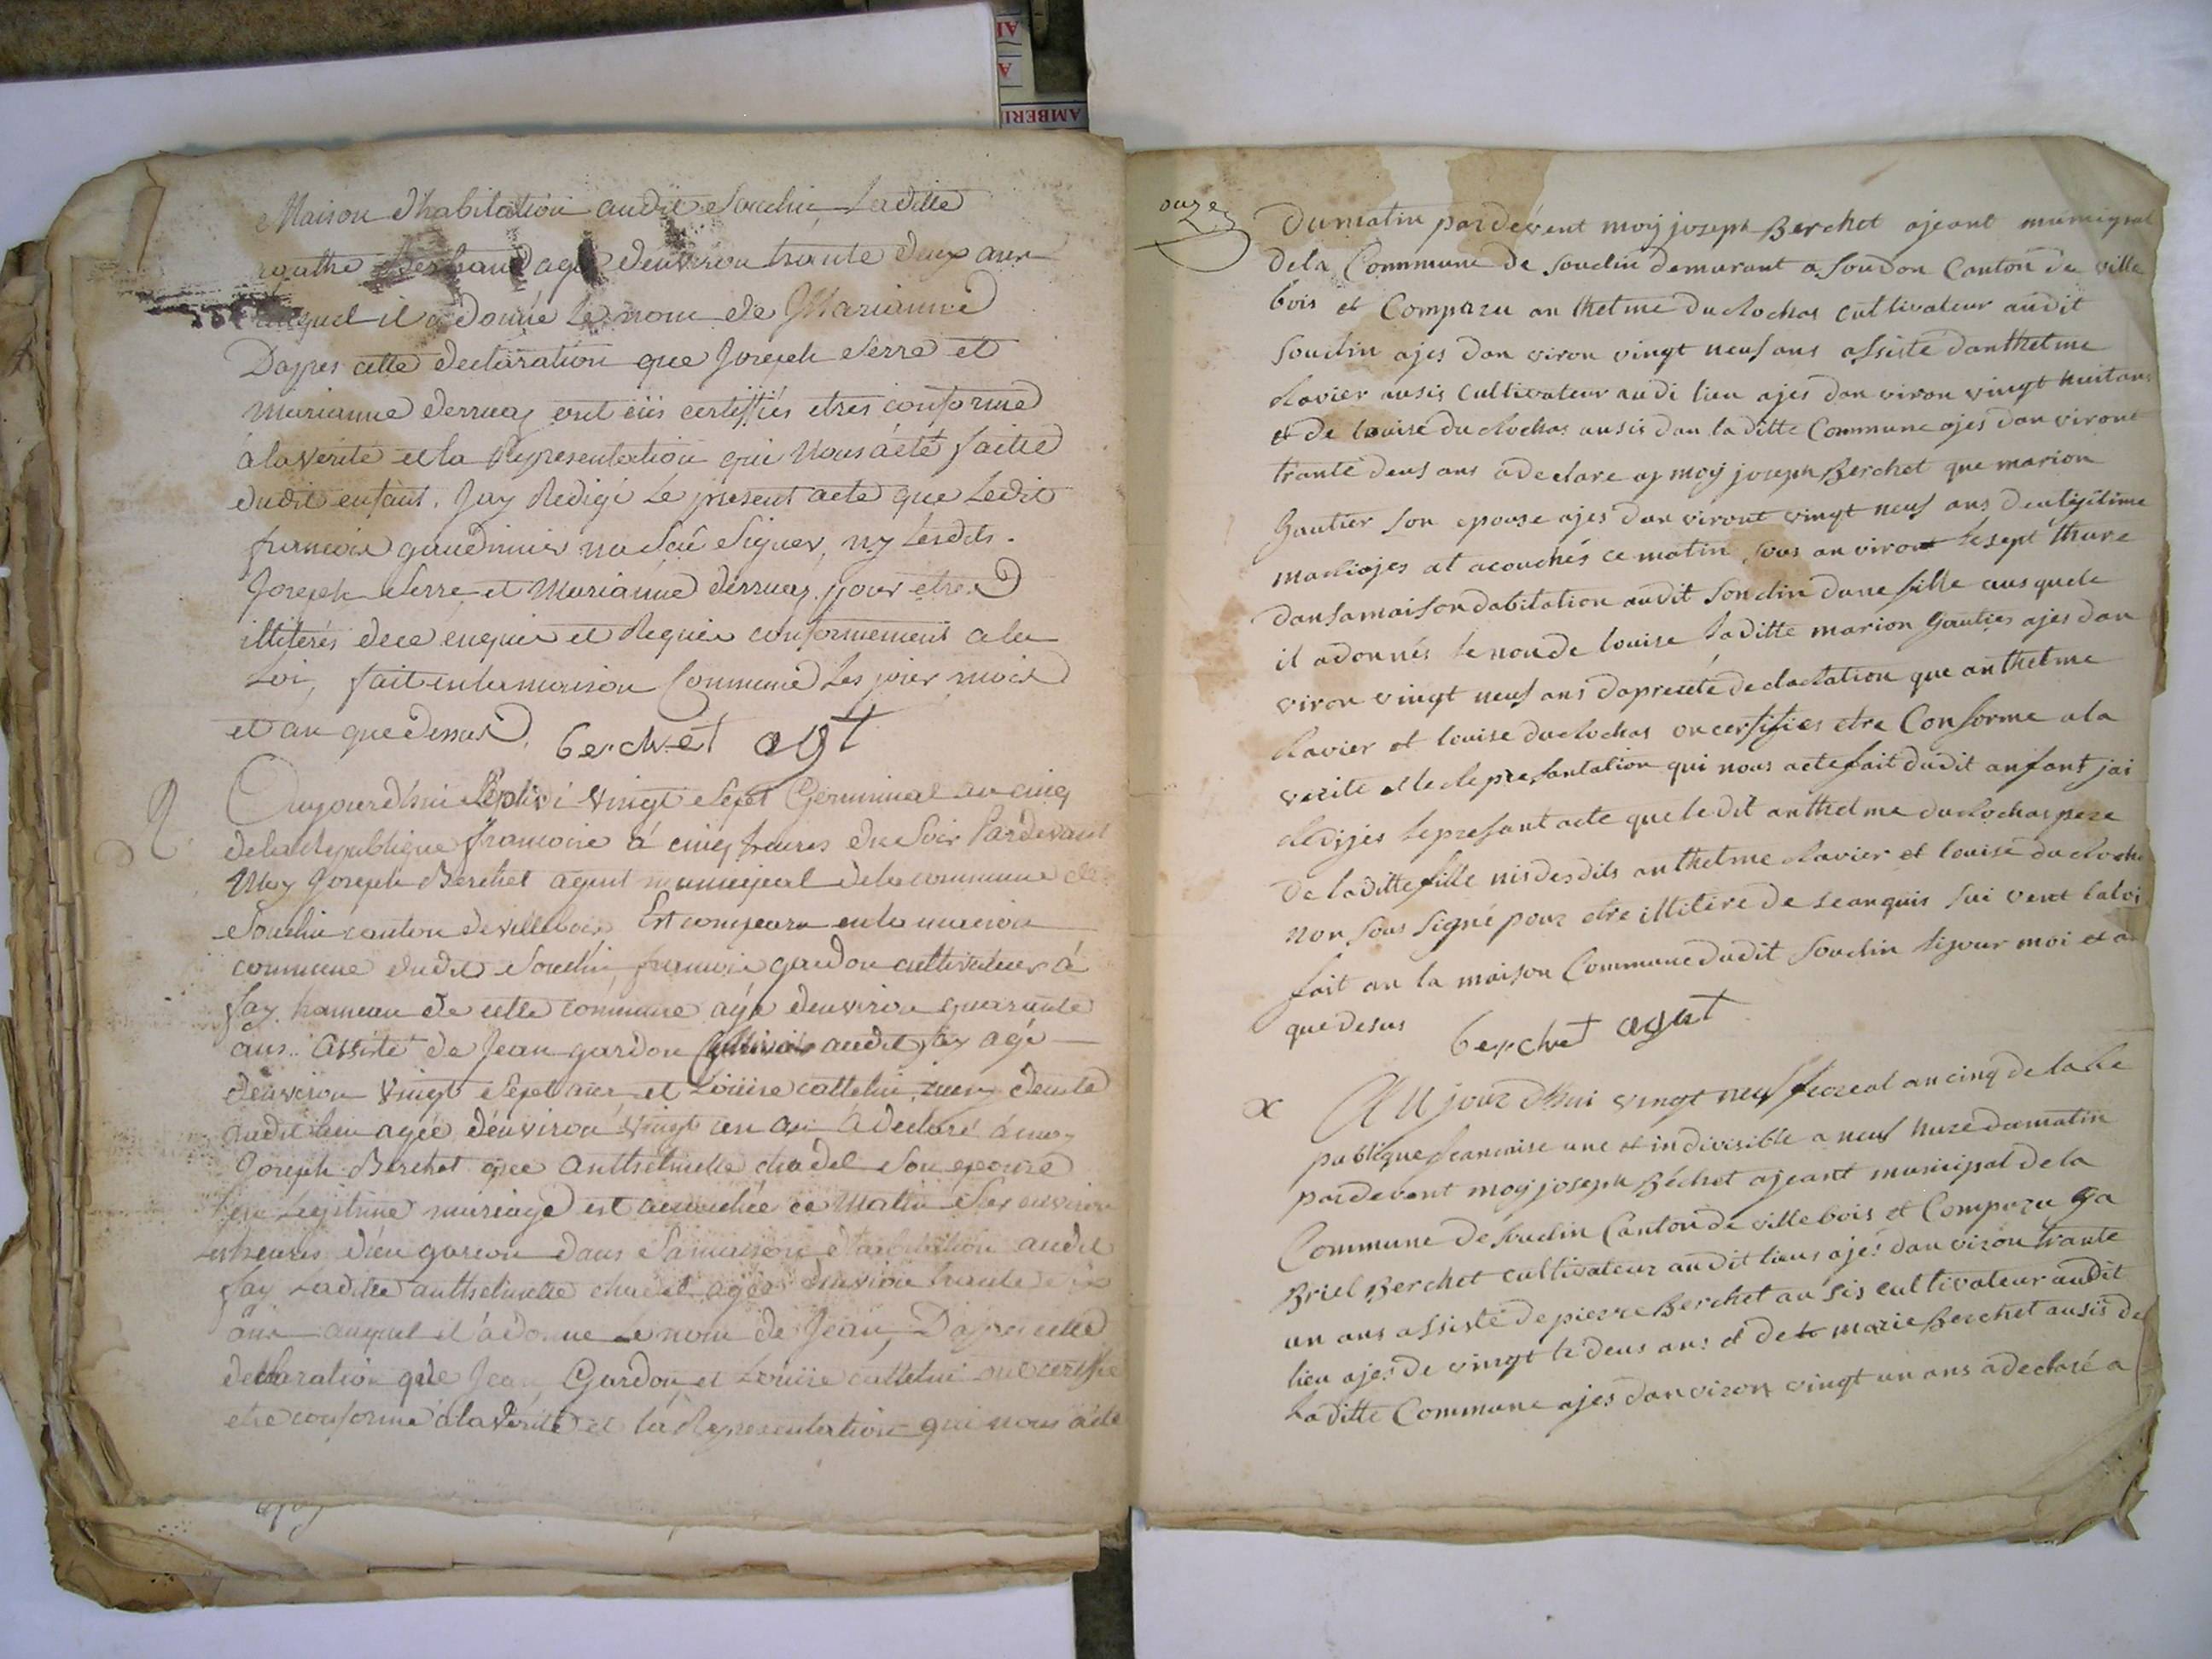 Maison d'habitation audit Souclin, Ladite
agathe agé denviron trante deux ans
auquel il a donné le nom de Marianne
Dapres cette declaration que Joseph Serre et
Marianne derruaz ont certiffiés etres conforme
à la vérité et la Representation qui Nous à été faitte
dudit enfant. Jay Redigé Le present acte que Ledit
francois na Sçu Signer, ny lesdits.
Joseph Serre et Marianne derruaz pour etres
illiterés de ce enquis et Requis conformement a la
Loi, fait en la maison Commune Les jour mois
et an que dessus. berchet agt
Aujourd'hui Septidi vingt Sept Germinal an cinq
de la Republique francoise à cinq heures du Soir Pardevant
Moy Joseph Berchet agent municipal de la commune de
Souclin canton de villebois Est comparu en la maison
commune dudit Souclin francois gardon cultivateur à
fay hameau de cette commune agé denviron quarante
ans.. Assisté de Jean gardon audit fay agé
denviron vingt Sept ans et Louise cattelin
audit lieu agée denviron vingt un an à declaré à moy
Joseph Berchet que Anthelmette chadel Son epouse
en Legitime mariage est acouchée ce matin Sur environ
heures dun garcon dans Sa maison d'habitation audit
fay Ladite anthelmette chadel agée denviron trante
ans auquel il a donné Le nom de Jean, Dapres cette
declaration que Jean Gardon et Louise cattelin ont certiffié
etre conforme à la verité et la Representation qui nous à été
onze
Du matin par devent moy joseph Berchet ajeant municipal
dela Commune de Souclin demurant a Soudon Canton de ville
bois et Comparu an thelme du Rochas cultivateur audit
Souclin ajes dan viron vingt neuf ans assisté danthelme
Ravier ausis Cultivateur audi lieu ajes dan viron vingt huit ans
et de louise du Rochas ausis dan la ditte Commune ajes dan viront
trante deus ans a declare a moy joseph Berchet que marion
Gautier Son epouse ajes dan viront vingt neuf ans deu legitime
mariajes at acouchés ce matin sus an viron le sept thure
dan sa maison dabitation audit Souclin dune fille aus quele
il a donnés le nou de louise la ditte marion Gautier ajes dan
viron vingt neuf ans daprecete declaration que anthelme
Ravier et louise du Rochas on certifies etre Conforme a la
verite et le Represantation qui nous a ete fait dudit anfant jai
Redijes le presant acte que le dit anthelme du Rochas pere
de la ditte fille nis desdits anthelme Ravier et louise du Rochas
non Sous Signé pour etre illitere de Seanquis Sui vent la loi
fait an la maison Commune dudit Souclin lijour moi et an
que desus berchet agent
x Au jour d'hui vingt neuf floreal an cinq de la Re
publique francaise une et indivisible a neuf hure du matin
par devent moy joseph Béchet ajeant municipal de la
Commune de Souclin Canton de ville bois et Comparu Ga
Briel Berchet cultivateur audit lieus ajés dan viron trante
un ans assisté de pierre Berchet au sis cultivateur audit
lieu ajes de vingt te deus ans et de marie Berchet ausis de
la ditte Commune ajes dan viron vingt un ans a declaré a